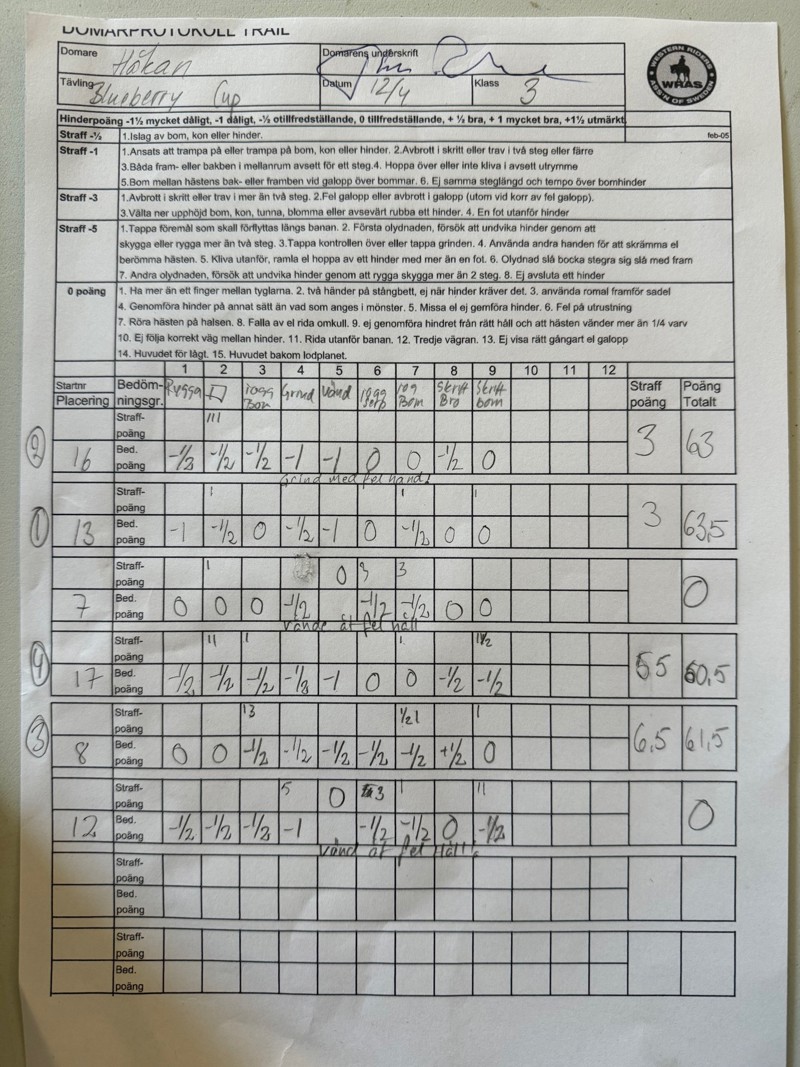 DOMARPROTOKOLL TRAIL
Domare Håkan Domarens underskrift
Tävling Blueberry Cup Datum 12/4 Klass 3
WESTERN RIDERS ASS'N OF SWEDEN
WRAS
Hinderpoäng -1½ mycket dåligt, -1 dåligt, -½ otillfredställande, 0 tillfredställande, + ½ bra, + 1 mycket bra, +1½ utmärkt
feb-05
Straff -½ 1.Islag av bom, kon eller hinder.
Straff -1 1.Ansats att trampa på eller trampa på bom, kon eller hinder. 2.Avbrott i skritt eller trav i två steg eller färre
3.Båda fram- eller bakben i mellanrum avsett för ett steg.4. Hoppa över eller inte kliva i avsett utrymme
5.Bom mellan hästens bak- eller framben vid galopp över bommar. 6. Ej samma steglängd och tempo över bomhinder
Straff -3 1.Avbrott i skritt eller trav i mer än två steg. 2.Fel galopp eller avbrott i galopp (utom vid korr av fel galopp).
3.Välta ner upphöjd bom, kon, tunna, blomma eller avsevärt rubba ett hinder. 4. En fot utanför hinder
Straff -5 1.Tappa föremål som skall förflyttas längs banan. 2. Första olydnaden, försök att undvika hinder genom att
skygga eller rygga mer än två steg. 3.Tappa kontrollen över eller tappa grinden. 4. Använda andra handen för att skrämma el
berömma hästen. 5. Kliva utanför, ramla el hoppa av ett hinder med mer än en fot. 6. Olydnad slå bocka stegra sig slå med fram
7. Andra olydnaden, försök att undvika hinder genom att rygga skygga mer än 2 steg. 8. Ej avsluta ett hinder
0 poäng 1. Ha mer än ett finger mellan tyglarna. 2. två händer på stångbett, ej när hinder kräver det. 3. använda romal framför sadel
4. Genomföra hinder på annat sätt än vad som anges i mönster. 5. Missa el ej gemföra hinder. 6. Fel på utrustning
7. Röra hästen på halsen. 8. Falla av el rida omkull. 9. ej genomföra hindret från rätt håll och att hästen vänder mer än 1/4 varv
10. Ej följa korrekt väg mellan hinder. 11. Rida utanför banan. 12. Tredje vägran. 13. Ej visa rätt gångart el galopp
14. Huvudet för lågt. 15. Huvudet bakom lodplanet.
1 2 3 4 5 6 7 8 9 10 11 12
Startnr Placering Bedöm-ningsgr. Rygga Jogg Bom Grind Vänd Jogg Serp Jog Bom Skritt Bro Skritt bom Straff poäng Poäng Totalt
Straff-poäng III 3 63
2 16 Bed. poäng -½ -½ -½ -1 -1 0 0 -½ 0
Grind med fel hand!
Straff-poäng 1 1 1 3 63,5
1 13 Bed. poäng -1 -½ 0 -½ -1 0 -½ 0 0
Straff-poäng 1 0 3 3 0
7 Bed. poäng 0 0 0 -½ -½ -½ 0 0
Vände åt fel håll
Straff-poäng 11 1 1 1½ 55 60,5
4 17 Bed. poäng -½ -½ -½ -½ -1 0 0 -½ -½
Straff-poäng 13 ½1 1 6,5 61,5
3 8 Bed. poäng 0 0 -½ -½ -½ -½ -½ +½ 0
Straff-poäng 5 0 3 1 11 0
12 Bed. poäng -½ -½ -½ -1 -½ -½ 0 -½
Vänd åt fel Håll!
Straff-poäng
Bed. poäng
Straff-poäng
Bed. poäng